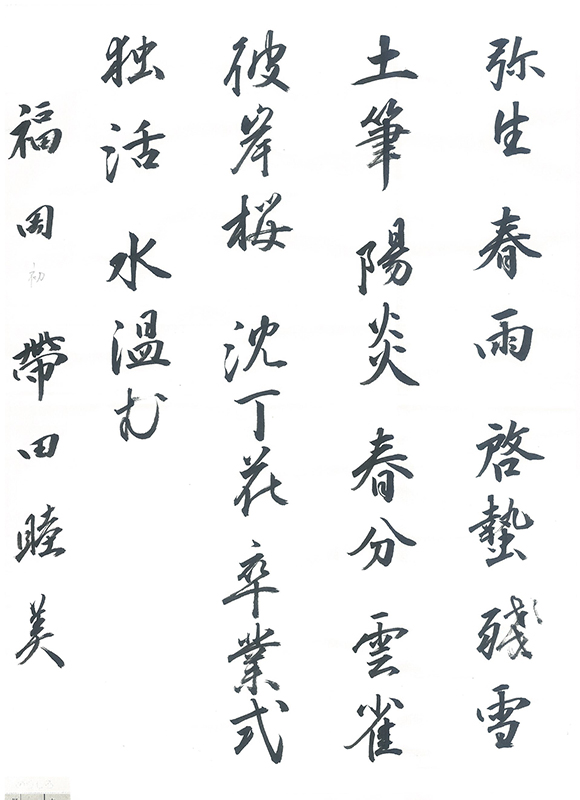 弥生 春雨 啓蟄 残雪
土筆 陽炎 春分 雲雀
彼岸桜 沈丁花 卒業式
独活 水温む
福岡 初 帯田睦美